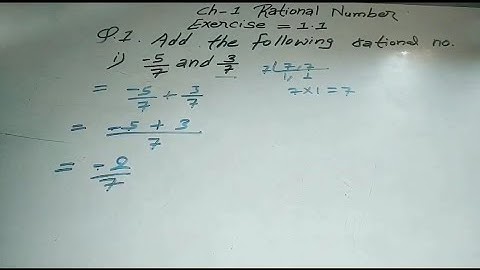 Ch-1 Rational Number
Exercise = 1.1
Q.1. Add the following rational no.
i) -5/7 and 3/7
7 | 7, 7
1, 1
7×1=7
= -5/7 + 3/7
= -5 + 3 / 7
= -2/7